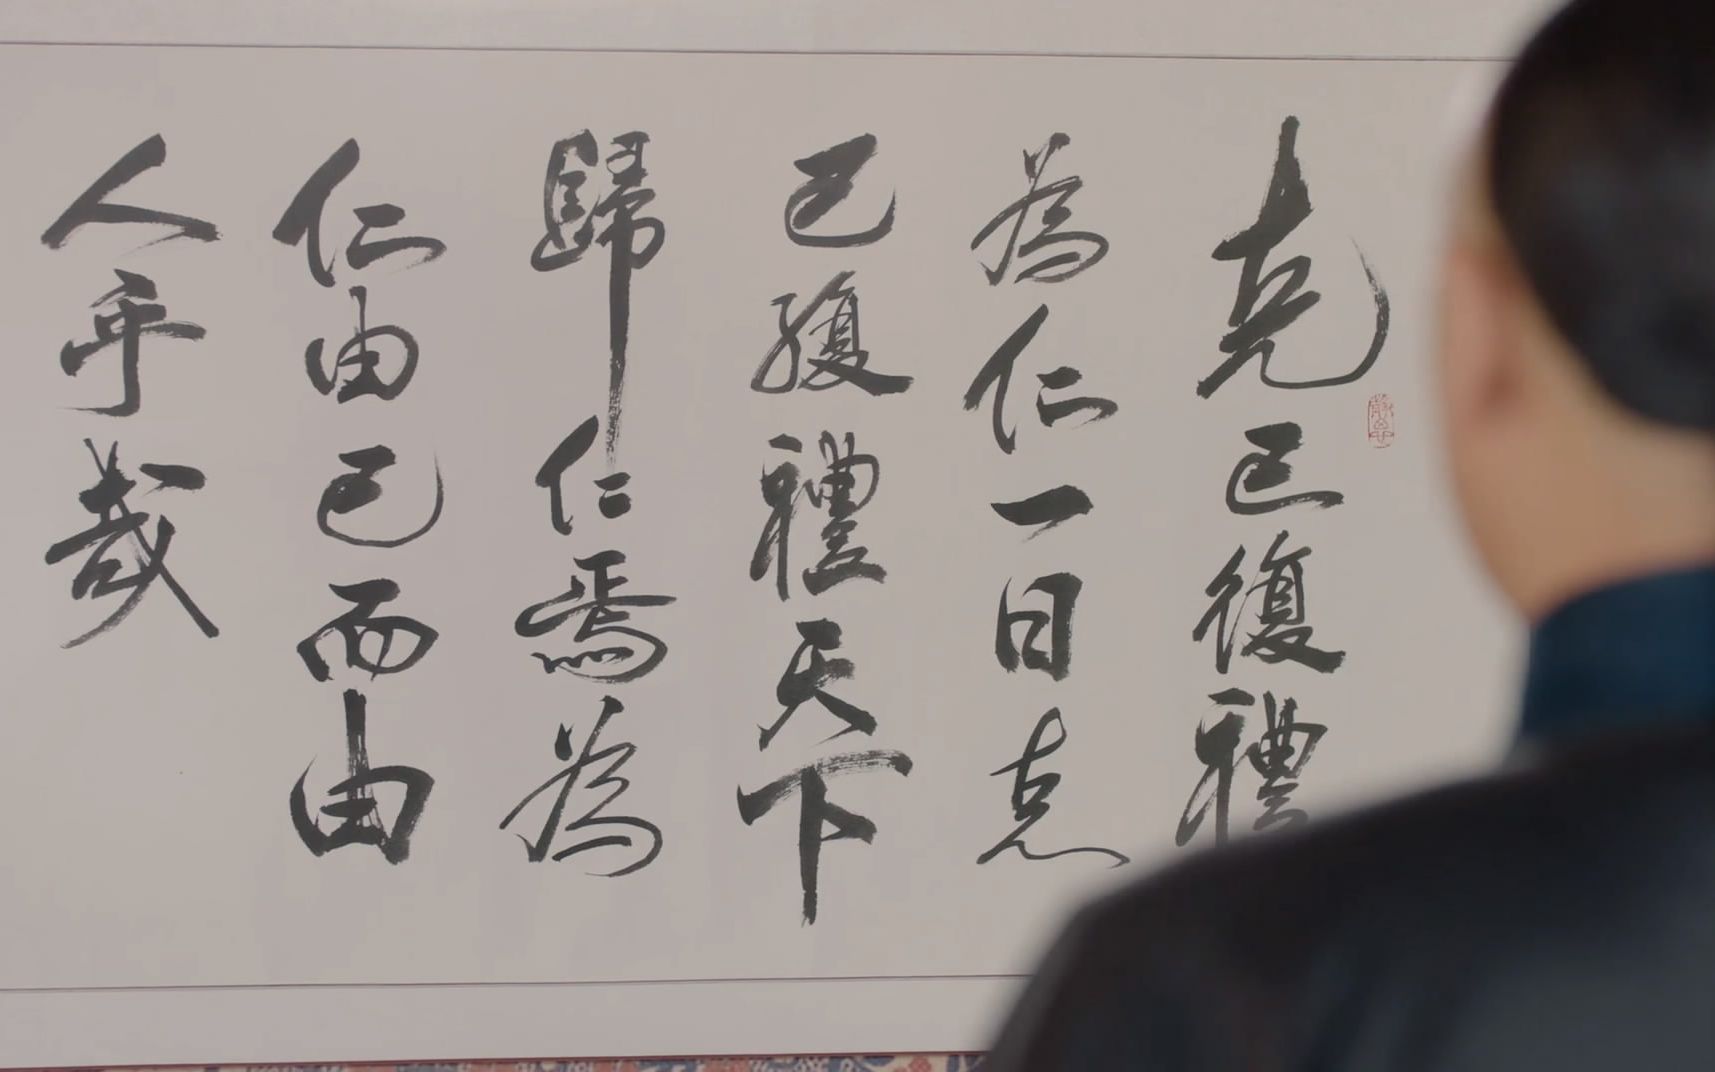 克己復禮
為仁一日克
己復禮天下
歸仁焉為
仁由己而由
人乎哉